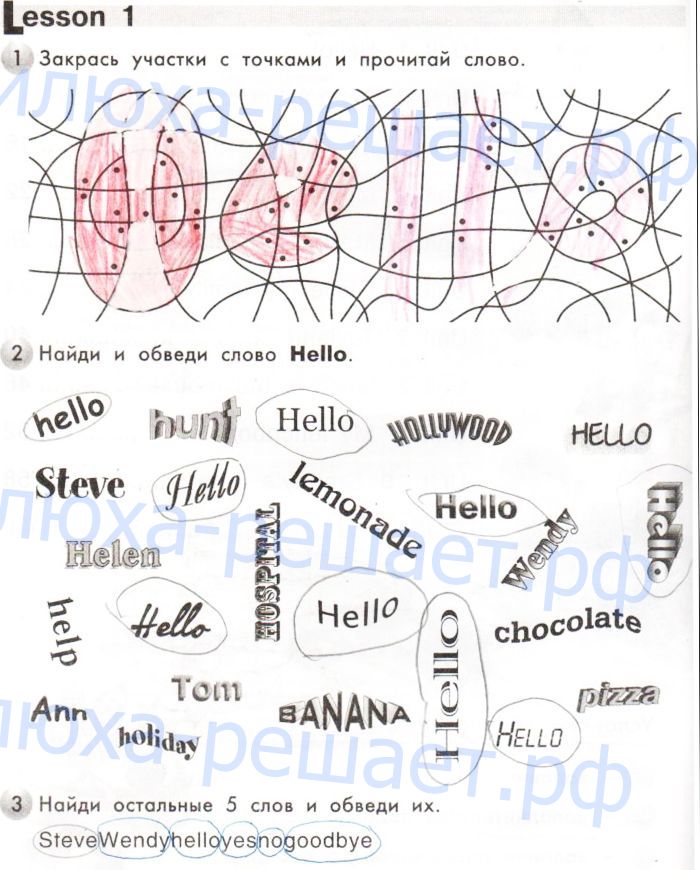 Lesson 1
1 Закрась участки с точками и прочитай слово.
илюха-решает.рф
Hello
2 Найди и обведи слово Hello.
hello hunt Hello HOLLYWOOD HELLO
Steve Hello lemonade Hello Hello
илюха-решает.рф
Helen HOSPITAL Wendy
help Hello Hello Hello chocolate
Tom pizza
Ann holiday BANANA HELLO
илюха-решает.рф
3 Найди остальные 5 слов и обведи их.
SteveWendyhelloyesnogoodbye